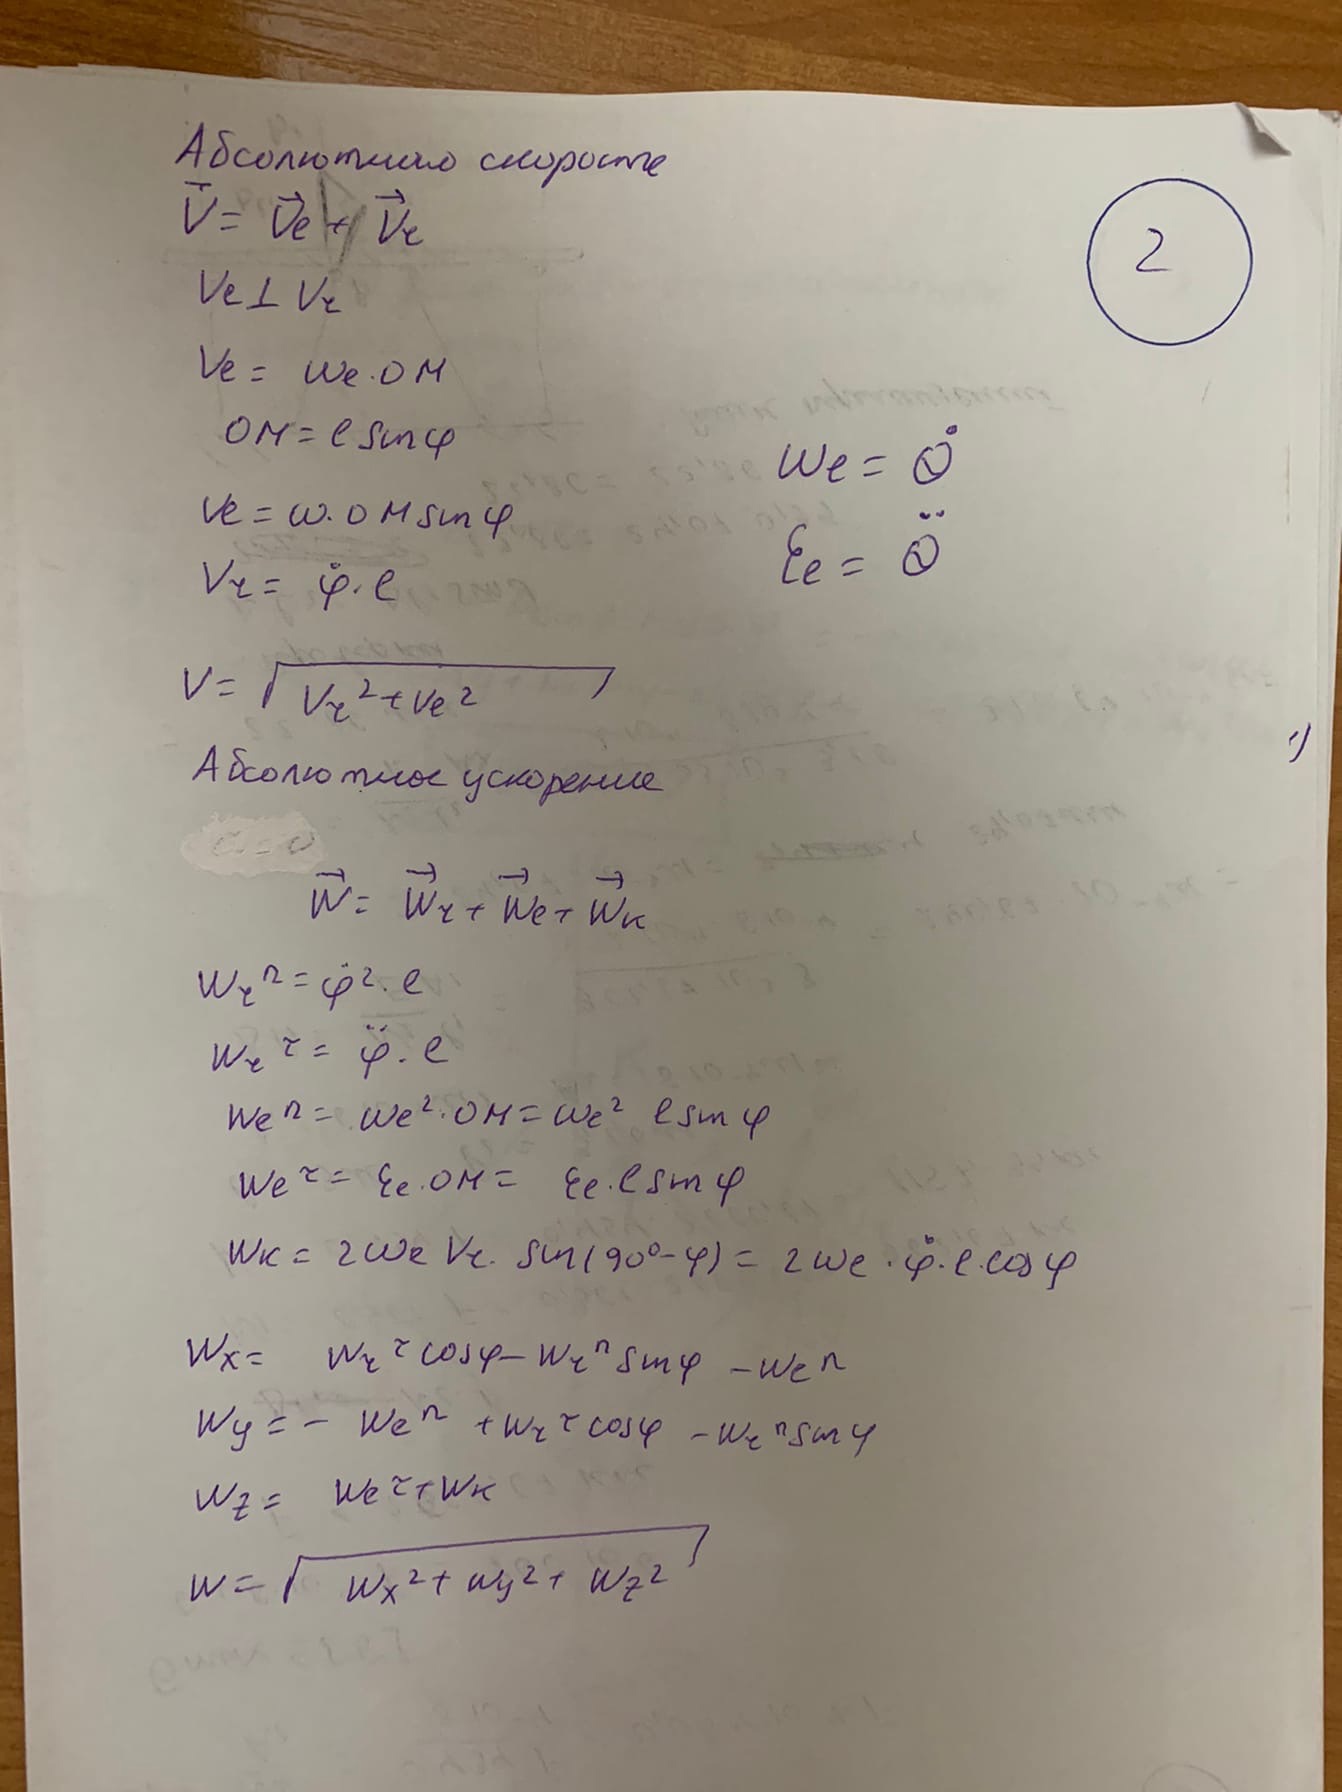 Абсолютная скорость
V̄ = V⃗e + V⃗r
Ve ⊥ Vr
Ve = ωe · OM
OM = l sin φ
Ve = ω · OM sin φ
Vr = φ̇ · l
V = √(Vr² + Ve²)
2
ωe = Θ̇
εe = Θ̈
Абсолютное ускорение
W⃗ = W⃗r + W⃗e + W⃗к
Wrⁿ = φ̇² · l
Wr^τ = φ̈ · l
Weⁿ = ωe² · OM = ωe² l sin φ
We^τ = εe · OM = εe · l sin φ
Wк = 2ωe Vr · sin(90° - φ) = 2ωe · φ̇ · l · cos φ
Wx = Wr^τ cos φ - Wrⁿ sin φ - Weⁿ
Wy = - Weⁿ + Wr^τ cos φ - Wrⁿ sin φ
Wz = We^τ + Wк
W = √(Wx² + Wy² + Wz²)